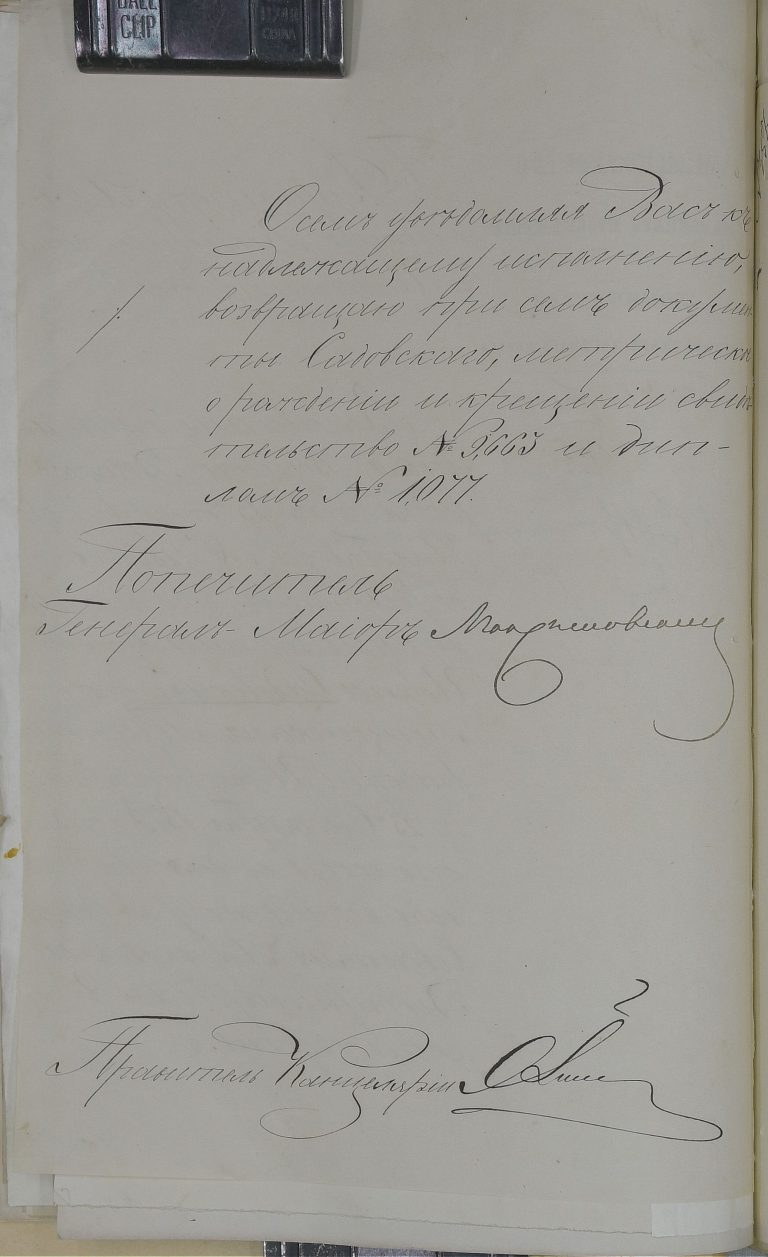 BALL
CLIP
О семъ увѣдомляя Васъ къ
надлежащему исполненію,
возвращаю при семъ докумен
ты Садовскаго, метрическое
о рожденіи и крещеніи свидѣ
тельство № 3,663 и дип-
ломъ № 1,077.
Попечитель
Генералъ-Маіоръ
Правитель Канцеляріи